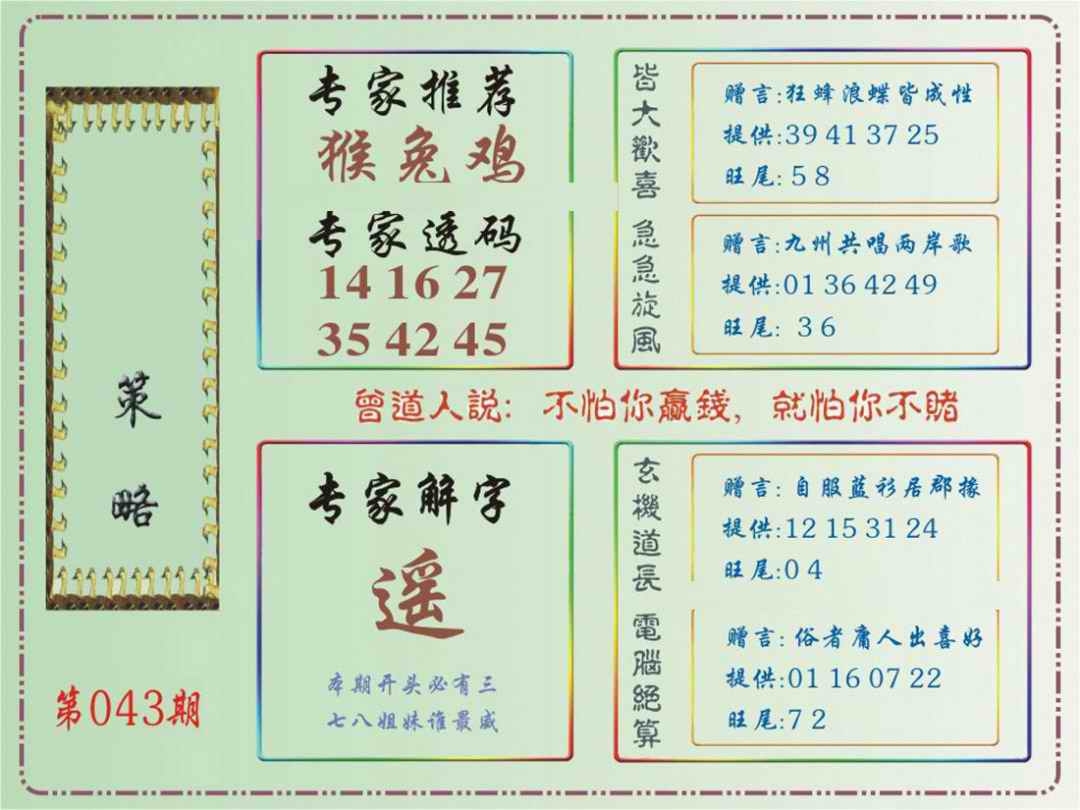 策略
第043期
专家推荐
猴兔鸡
专家透码
14 16 27
35 42 45
皆大歡喜
赠言:狂蜂浪蝶皆成性
提供:39 41 37 25
旺尾: 5 8
急急旋風
赠言:九州共唱两岸歌
提供:01 36 42 49
旺尾: 3 6
曾道人説: 不怕你贏錢, 就怕你不賭
专家解字
遥
本期开头必有三
七八姐妹谁最威
玄機道長
赠言: 自服蓝衫居郡掾
提供:12 15 31 24
旺尾:0 4
電腦絕算
赠言: 俗者庸人出喜好
提供:01 16 07 22
旺尾:7 2